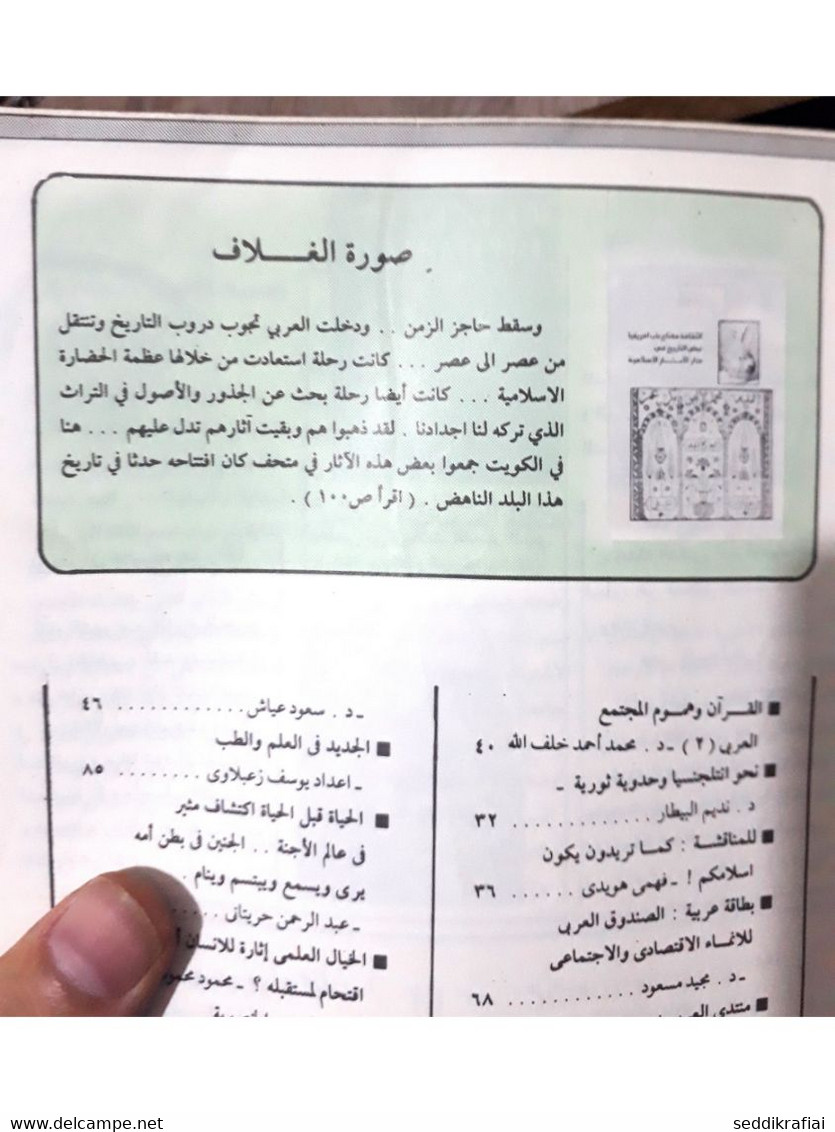 صورة الغـــلاف
وسقط حاجز الزمن . . ودخلت العربي تجوب دروب التاريخ وتنتقل
من عصر الى عصر . . . كانت رحلة استعادت من خلالها عظمة الحضارة
الاسلامية . . . كانت أيضا رحلة بحث عن الجذور والأصول في التراث
الذي تركه لنا اجدادنا . لقد ذهبوا هم وبقيت آثارهم تدل عليهم . . . هنا
في الكويت جمعوا بعض هذه الآثار في متحف كان افتتاحه حدثا في تاريخ
هذا البلد الناهض . ( اقرأ ص١٠٠ ) .
■ القـرآن وهموم المجتمع
العربي (٢) ـ د . محمد أحمد خلف الله ٤٠
■ نحو انتلجنسيا وحدوية ثورية ـ
د . نديم البيطار . . . . . . . . . . . . . ٣٢
■ للمناقشة : كما تريدون يكون
اسلامكم ! ـ فهمى هويدى . . . . . . ٣٦
■ بطاقة عربية : الصندوق العربي
للانماء الاقتصادى والاجتماعى
ـ د . مجيد مسعود . . . . . . . . . . . . ٦٨
■ منتدى
ـ د . سعود عياش . . . . . . . . . . . . . ٤٦
■ الجديد فى العلم والطب
ـ اعداد يوسف زعبلاوى . . . . . . . . ٨٥
■ الحياة قبل الحياة اكتشاف مثير
فى عالم الأجنة . . الجنين فى بطن أمه
يرى ويسمع ويبتسم وينام .
ـ عبد الرحمن حريتانى . . . . .
■ الخيال العلمى إثارة للانسان
اقتحام لمستقبله ؟ ـ محمود
seddikrafiai